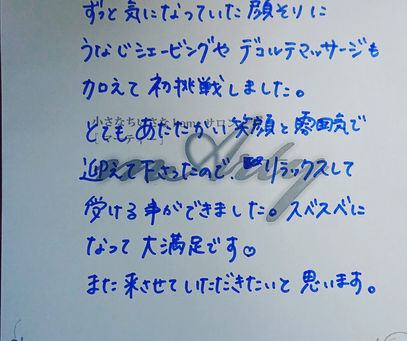 ずっと気になっていた顔そりに
うなじシェービングや デコルテマッサージも
加えて 初挑戦しました。
小さなちいさな homeサロン
とても あたたかい 笑顔と雰囲気で
迎えて下さったので、リラックスして
受ける事ができました。スベスベに
なって 大満足です♡
また 来させていただきたいと 思います。